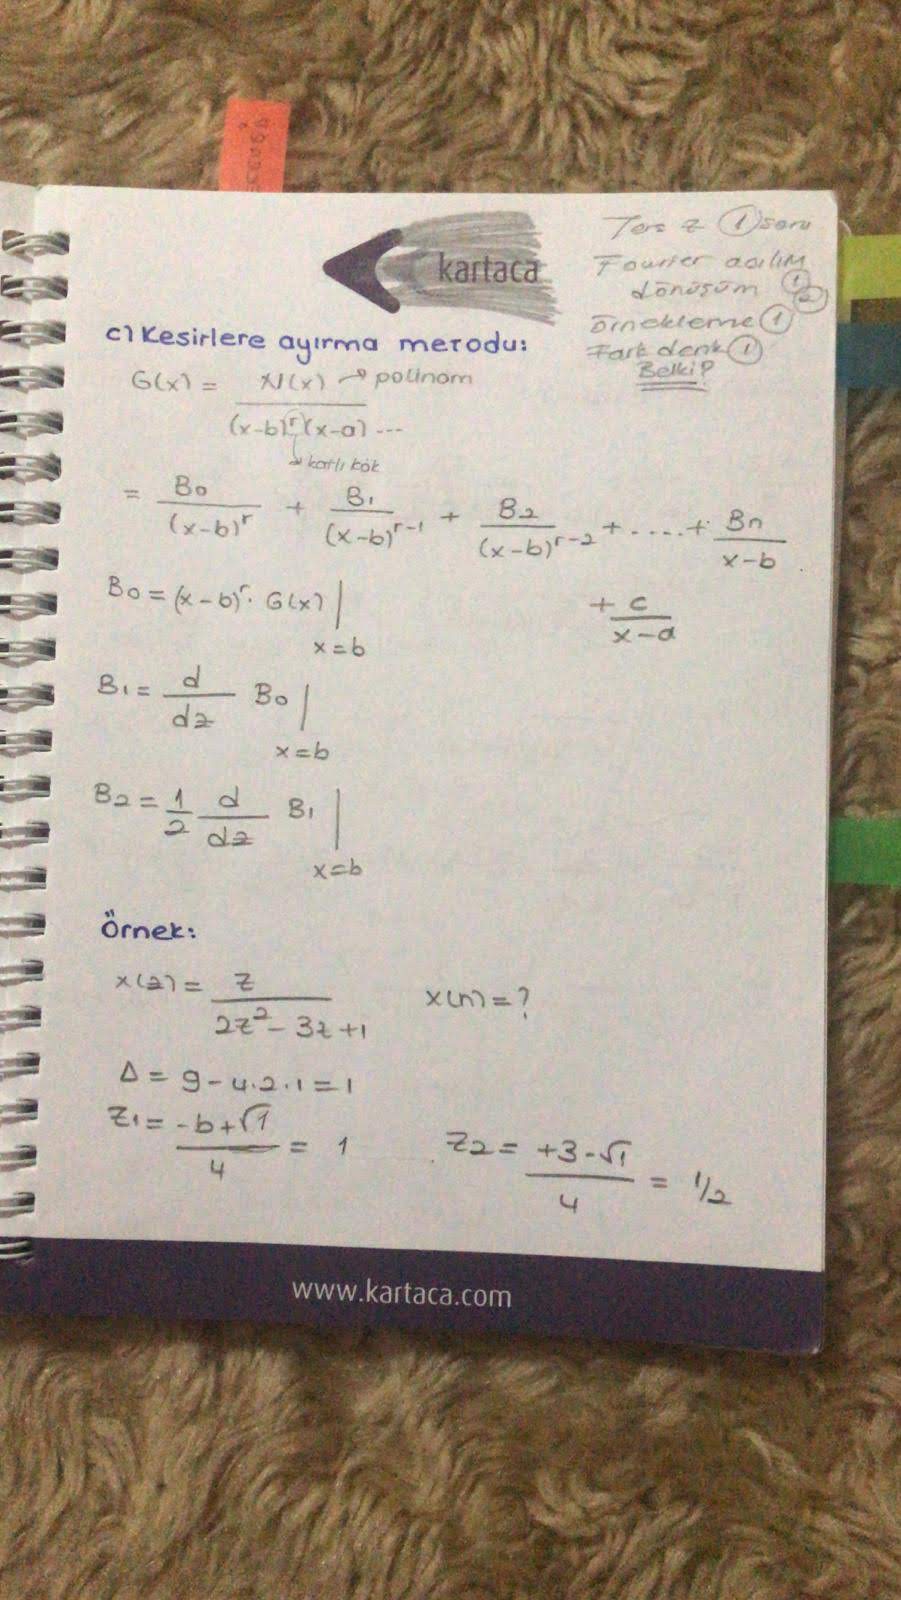 kartaca
Ters z ① soru
Fourier açılım
dönüşüm ① ②
Örnekleme ①
Fark denk ①
Belki?
c) Kesirlere ayırma metodu:
G(x) = N(x) → polinom
(x-b)^r (x-a) ...
→ katlı kök
= B0/(x-b)^r + B1/(x-b)^r-1 + B2/(x-b)^r-2 + .... + Bn/x-b
+ c/x-a
B0 = (x-b)^r . G(x) | x=b
B1 = d/dz B0 | x=b
B2 = 1/2 d/dz B1 | x=b
Örnek:
x(z) = z/2z^2 - 3z + 1 x(n) = ?
Δ = 9 - 4.2.1 = 1
z1 = -b+√1/4 = 1 z2 = +3-√1/4 = 1/2
www.kartaca.com